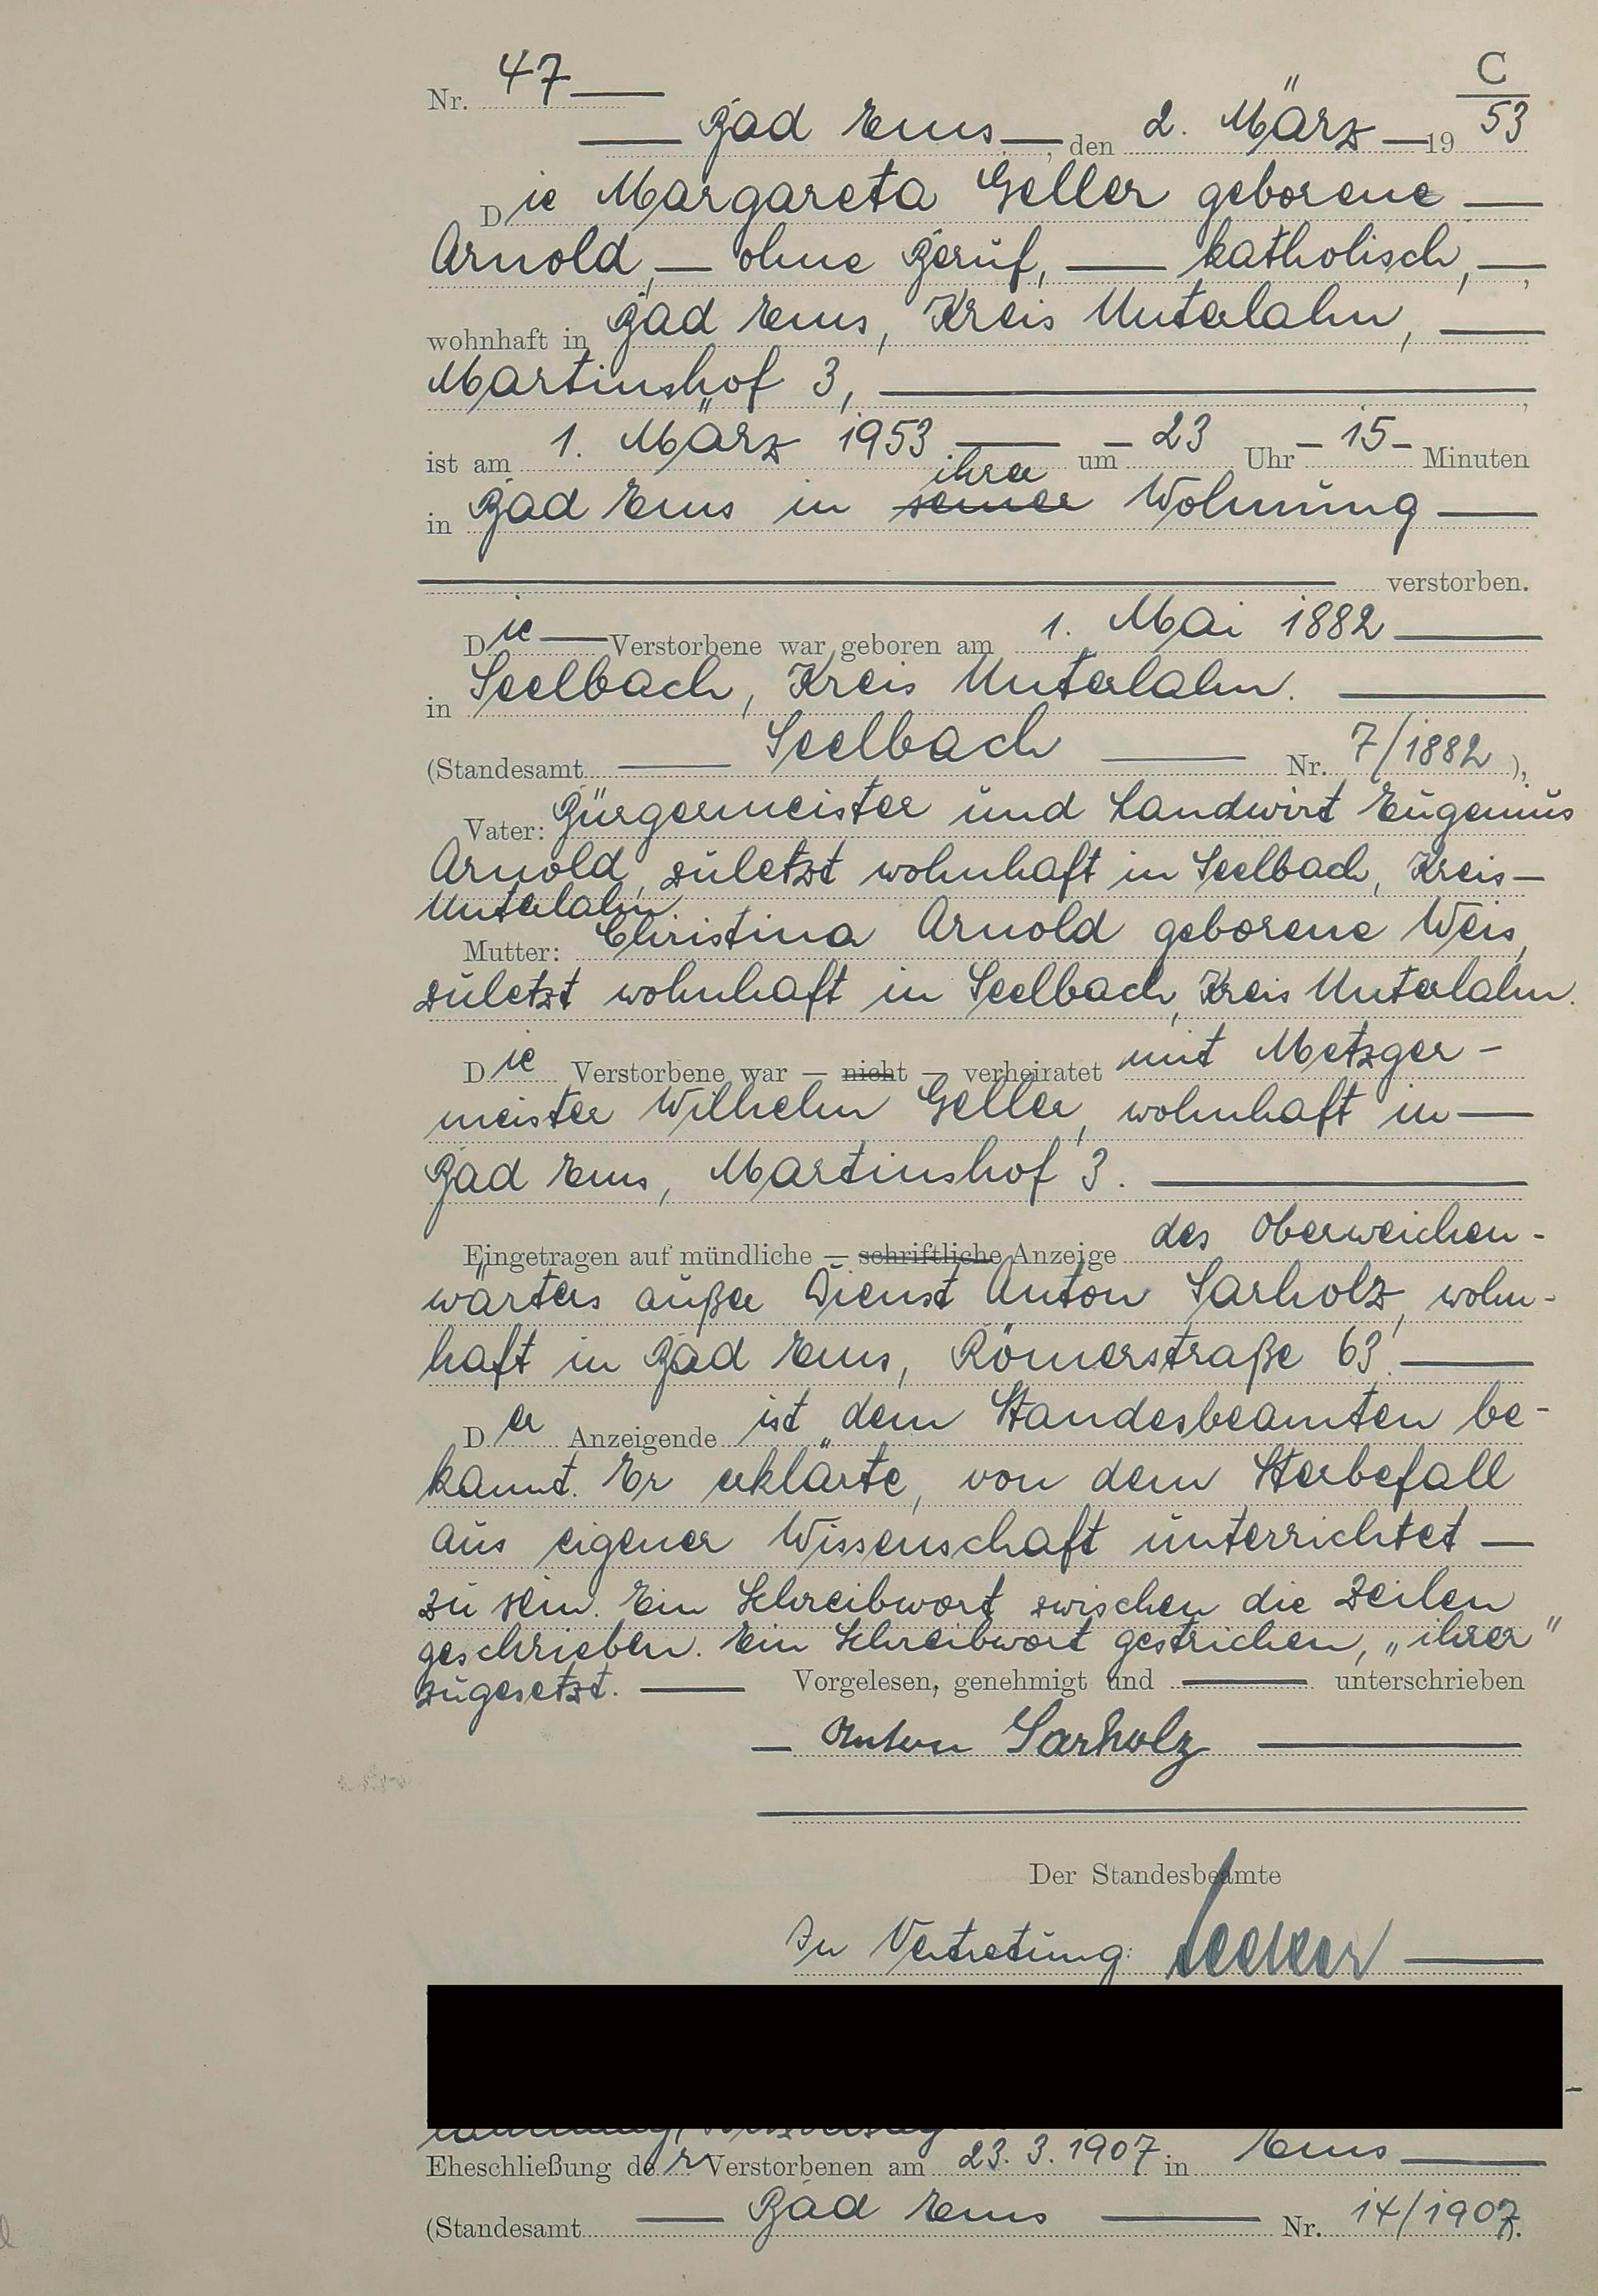 Nr. 47 C
Bad Ems, den 2. März 1953
Die Margareta Geller geborene
Arnold, ohne Beruf, katholisch,
wohnhaft in Bad Ems, Kreis Unterlahn,
Martinshof 3,
ist am 1. März 1953 um 23 Uhr 15 Minuten
ihrer
in Bad Ems in seiner Wohnung
verstorben.
Die Verstorbene war geboren am 1. Mai 1882
in Seelbach, Kreis Unterlahn.
(Standesamt Seelbach Nr. 7/1882),
Vater: Bürgermeister und Landwirt Eugenius
Arnold, zuletzt wohnhaft in Seelbach, Kreis
Unterlahn.
Mutter: Christina Arnold geborene Weis,
zuletzt wohnhaft in Seelbach, Kreis Unterlahn.
Die Verstorbene war — nicht — verheiratet mit Metzger-
meister Wilhelm Geller, wohnhaft in
Bad Ems, Martinshof 3.
Eingetragen auf mündliche — schriftliche Anzeige des Oberweichen-
wärters außer Dienst Anton Sarholz, wohn-
haft in Bad Ems, Römerstraße 63.
Der Anzeigende ist dem Standesbeamten be-
kannt. Er erklärte, von dem Sterbefall
aus eigener Wissenschaft unterrichtet
zu sein. Ein Schreibwort zwischen die Zeilen
geschrieben. Ein Schreibwort gestrichen, „ihrer"
zugesetzt. Vorgelesen, genehmigt und unterschrieben
Anton Sarholz
Der Standesbeamte
In Vertretung:
Eheschließung der Verstorbenen am 23. 3. 1907 in Ems
(Standesamt Bad Ems Nr. 14/1907).